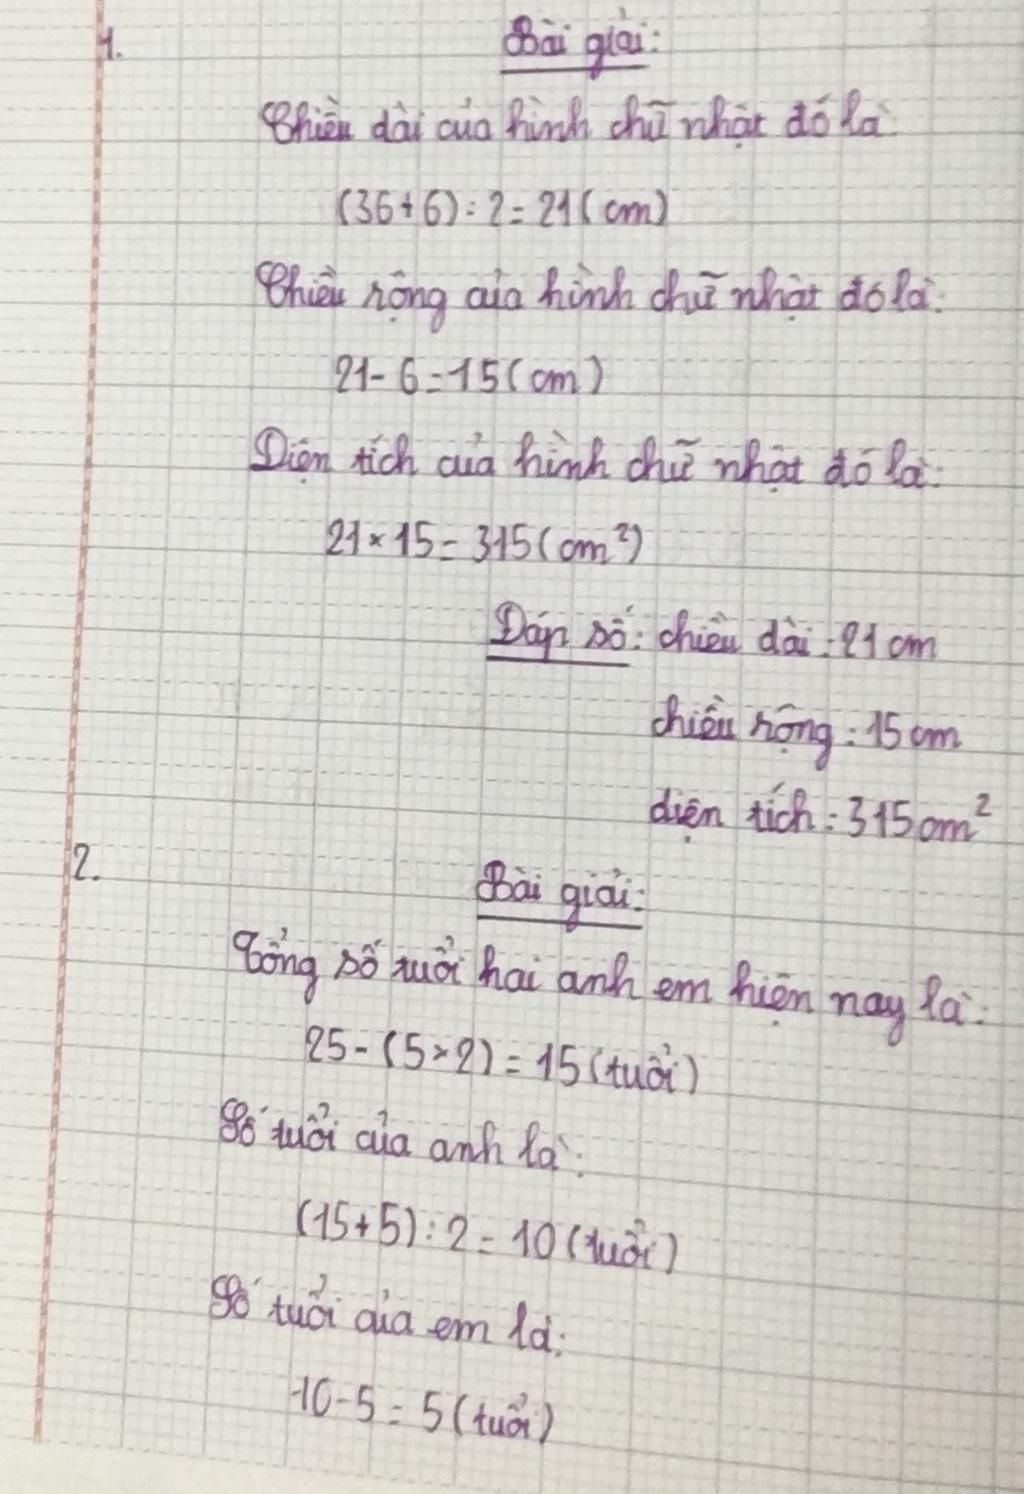 1.
Bài giải:
Chiều dài của hình chữ nhật đó là:
(36+6):2=21(cm)
Chiều rộng của hình chữ nhật đó là:
21-6=15(cm)
Diện tích của hình chữ nhật đó là:
21×15=315(cm²)
Đáp số: chiều dài: 21cm
chiều rộng: 15cm
diện tích: 315cm²
2.
Bài giải:
Tổng số tuổi hai anh em hiện nay là:
25-(5×2)=15(tuổi)
Số tuổi của anh là:
(15+5):2=10(tuổi)
Số tuổi của em là:
10-5=5(tuổi)